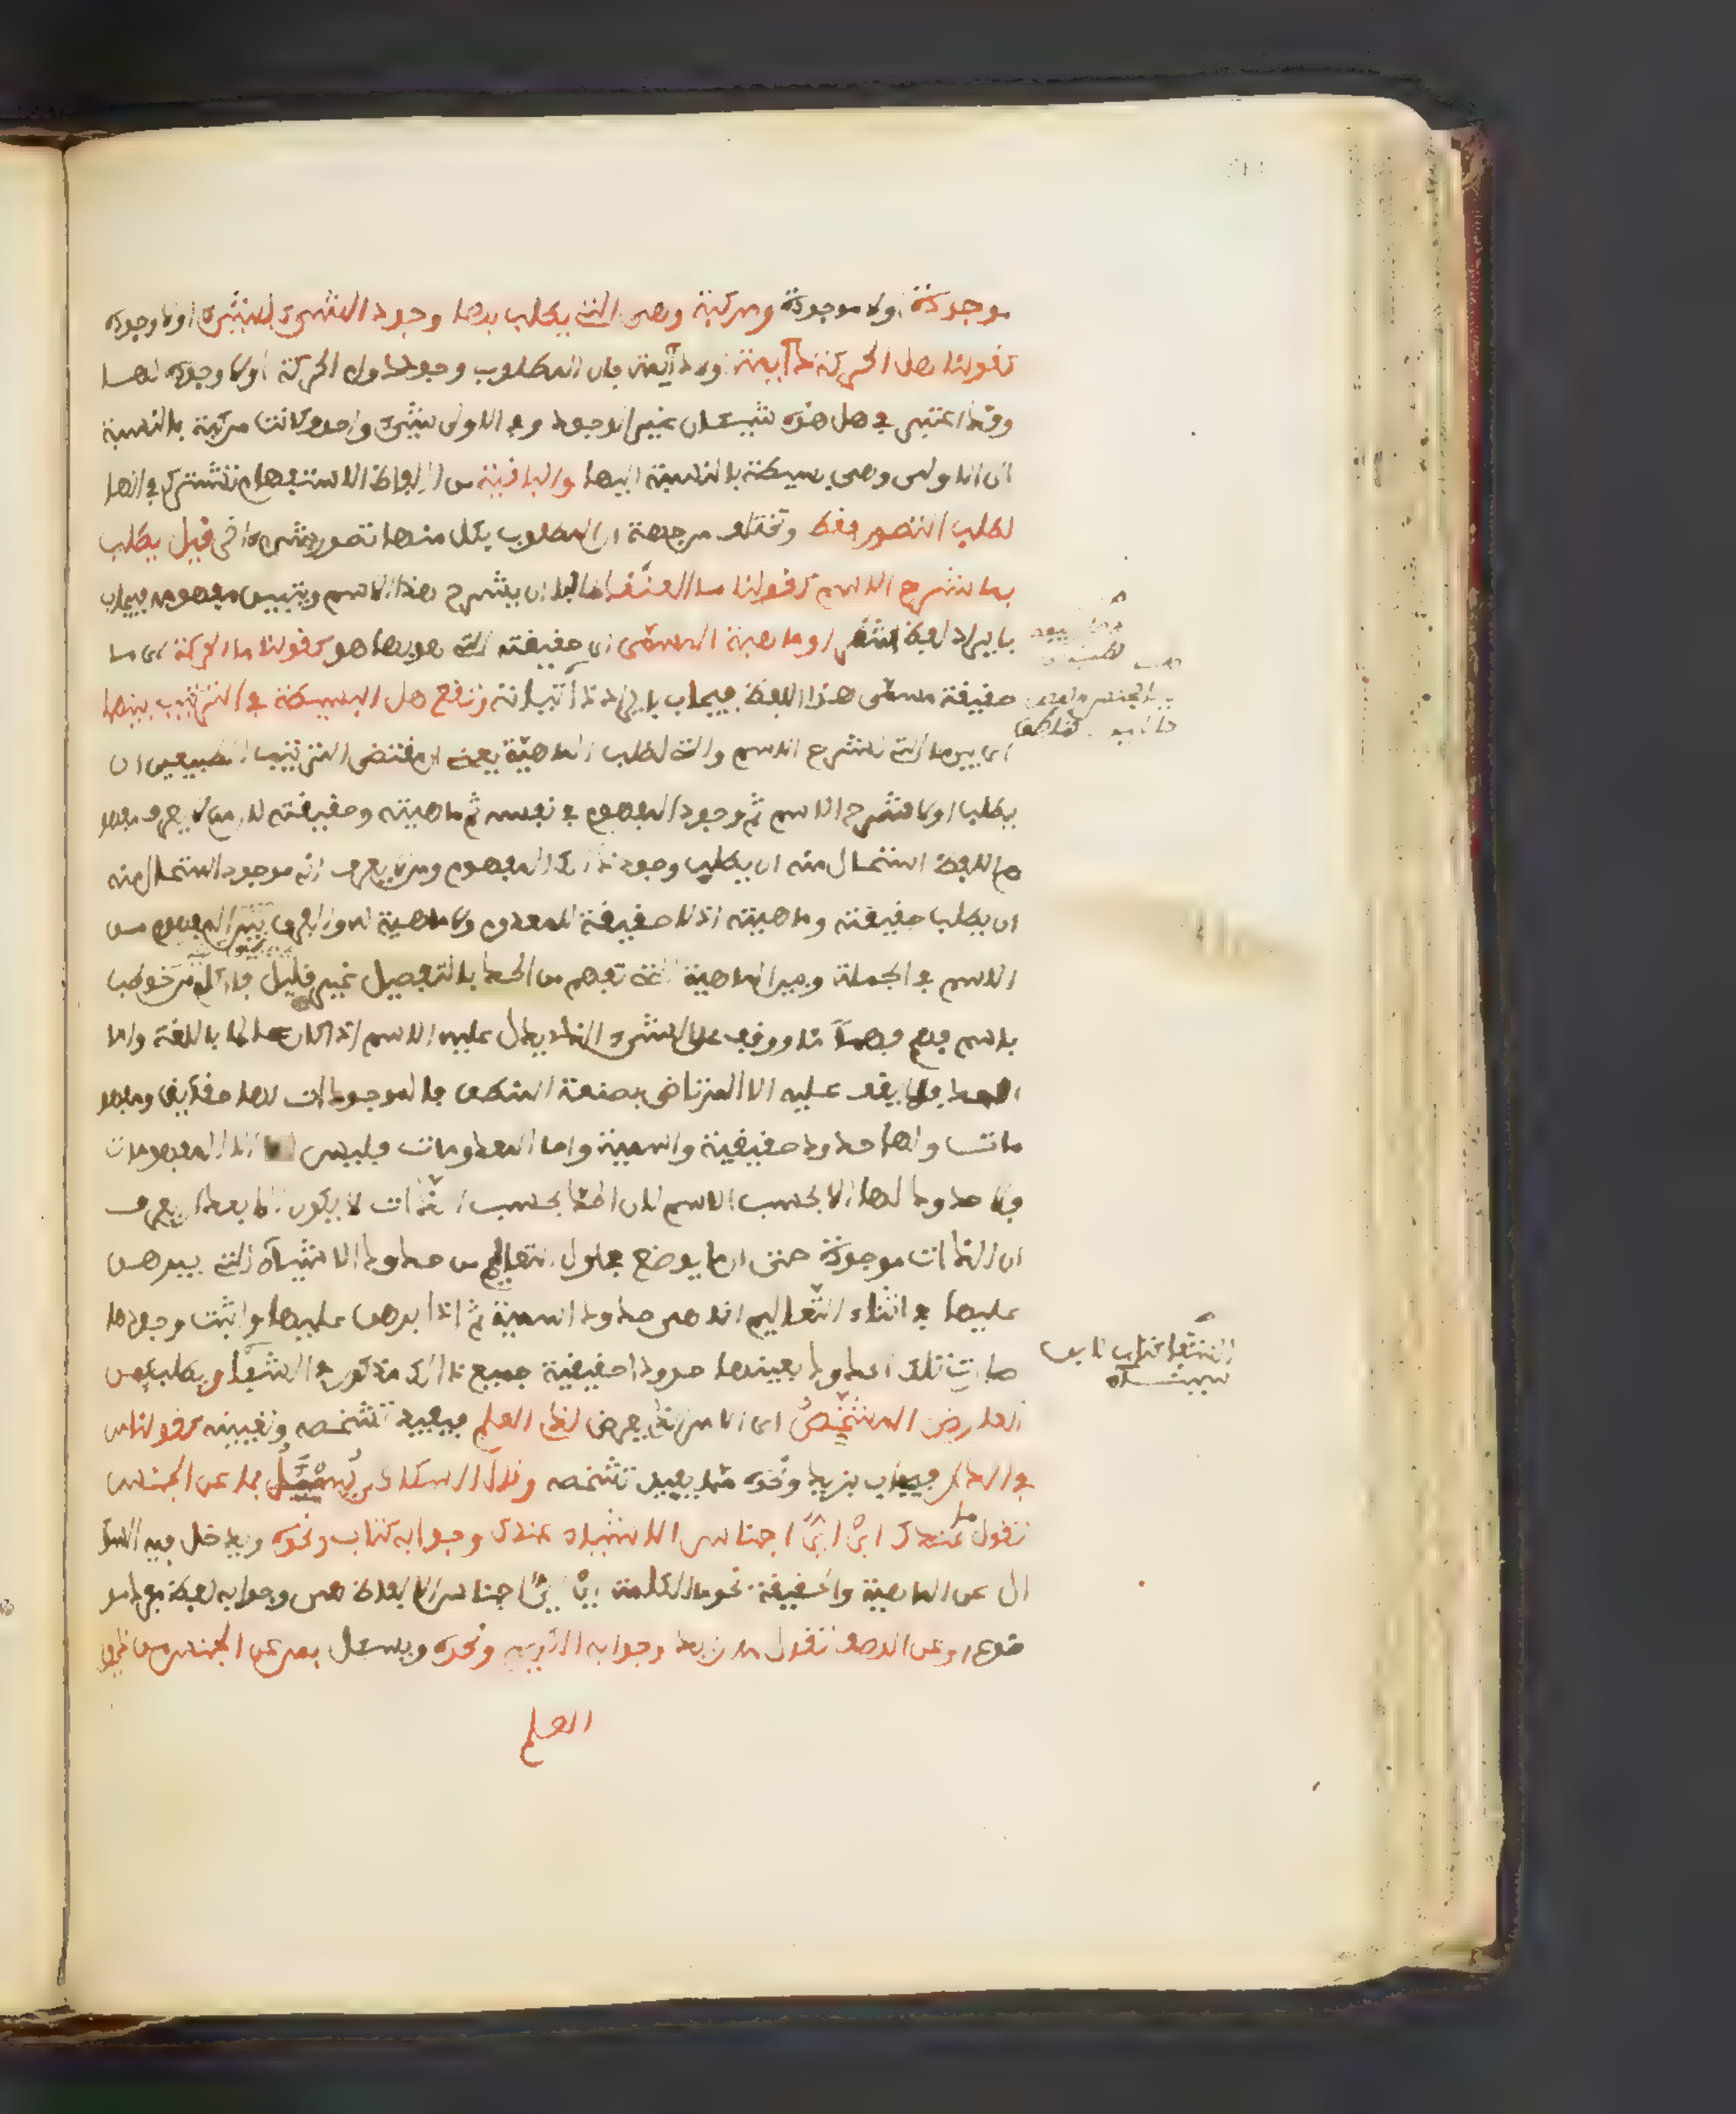 موجودة أو لا موجودة ومركبة وهي التي يطلب بها وجود الشيء لشيء أو لا وجوده
كقولنا هل الحركة دائمة أو لا دائمة فان المطلوب وجود الدوام للحركة أو لا وجوده لها
وقد اعتبر في هل هذه شيئان غير الوجود وفي الاولى شيء واحد فكانت مركبة بالنسبة
الى الاولى وهي بسيطة بالنسبة اليها والباقية من الفاظ الاستفهام تشترك في انها
لطلب التصور فقط وتختلف من جهة ان المطلوب بكل منها تصور شيء آخر قيل يطلب
بما شرح الاسم كقولنا ما العنقا طالبا ان يشرح هذا الاسم ويتبين مفهومه فيجاب
بايراد لفظ اشهر او ماهية المسمى اي حقيقته التي هو بها هو كقولنا ما الحركة اي ما
حقيقة مسمى هذا اللفظ فيجاب بايراد ذاتياته وتقع هل البسيطة في الترتيب بينهما
اي بين ما التي لشرح الاسم والتي لطلب الماهية يعني ان مقتضى الترتيب الطبيعي ان
يطلب اولا شرح الاسم ثم وجود المفهوم في نفسه ثم ماهيته وحقيقته لان من لا يعرف مفهو
م اللفظ استحال منه ان يطلب وجود ذلك المفهوم ومن لا يعرف انه موجود استحال منه
ان يطلب حقيقته وماهيته اذ لا حقيقة للمعدوم ولا ماهية له والفرق بين المفهوم من
الاسم في الجملة وبين الماهية التي تفهم من الحد بالتفصيل غير قليل فان كل من خوطب
باسم فهم فهما ما ووقف على الشيء الذي يدل عليه الاسم اذا كان عالما باللغة واما
الحد فلا يقف عليه الا المرتاض بصنعة المنطق فالموجودات لها حقايق ومفهو
مات ولها حدود حقيقية واسمية واما المعدومات فليس لها الا المفهومات
فلا حدود لها الا بحسب الاسم لان الحد بحسب الذات لا يكون الا بعد ان يعرف
ان الذات موجودة حتى ان ما يوضع في اول التعاليم من حدود الاشياء التي يبرهن
عليها في اثناء التعاليم انما هي حدود اسمية ثم اذا برهن عليها واثبت وجودها
صارت تلك الحدود بعينها حدودا حقيقية جميع ذلك مذكور في الشفا ويطلب بمن
العارض المشخص اي الامر الذي يعرض لذي العلم فيفيد تشخصه وتعيينه كقولنا من
في الدار فيجاب بزيد ونحوه مما يفيد تشخصه وقال السكاكي يسئل بما عن الجنس
تقول ما عندك اي اي اجناس الاشياء عندك وجوابه كتاب ونحوه ويدخل فيه السؤ
ال عن الماهية والحقيقة نحو ما الكلمة اي اي اجناس الالفاظ هي وجوابه لفظ مفرد مو
ضوع او عن الوصف تقول ما زيد وجوابه الكريم ونحوه ويسئل بمن عن الجنس من ذوي
العلم
الشفا كتاب لابن
سينا